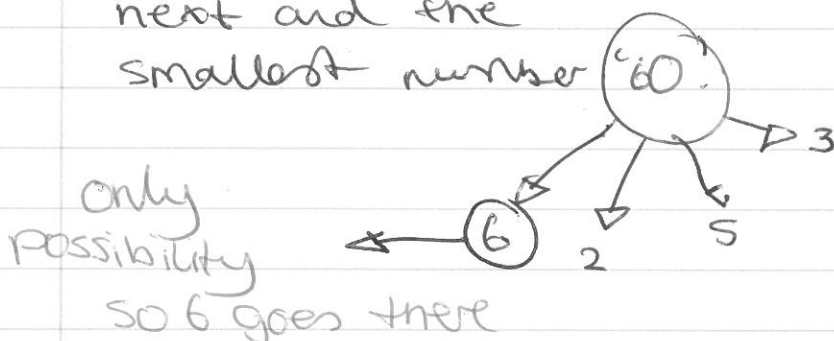 next and the
smallest number 60
3
only
possibility
6
2
5
so 6 goes there